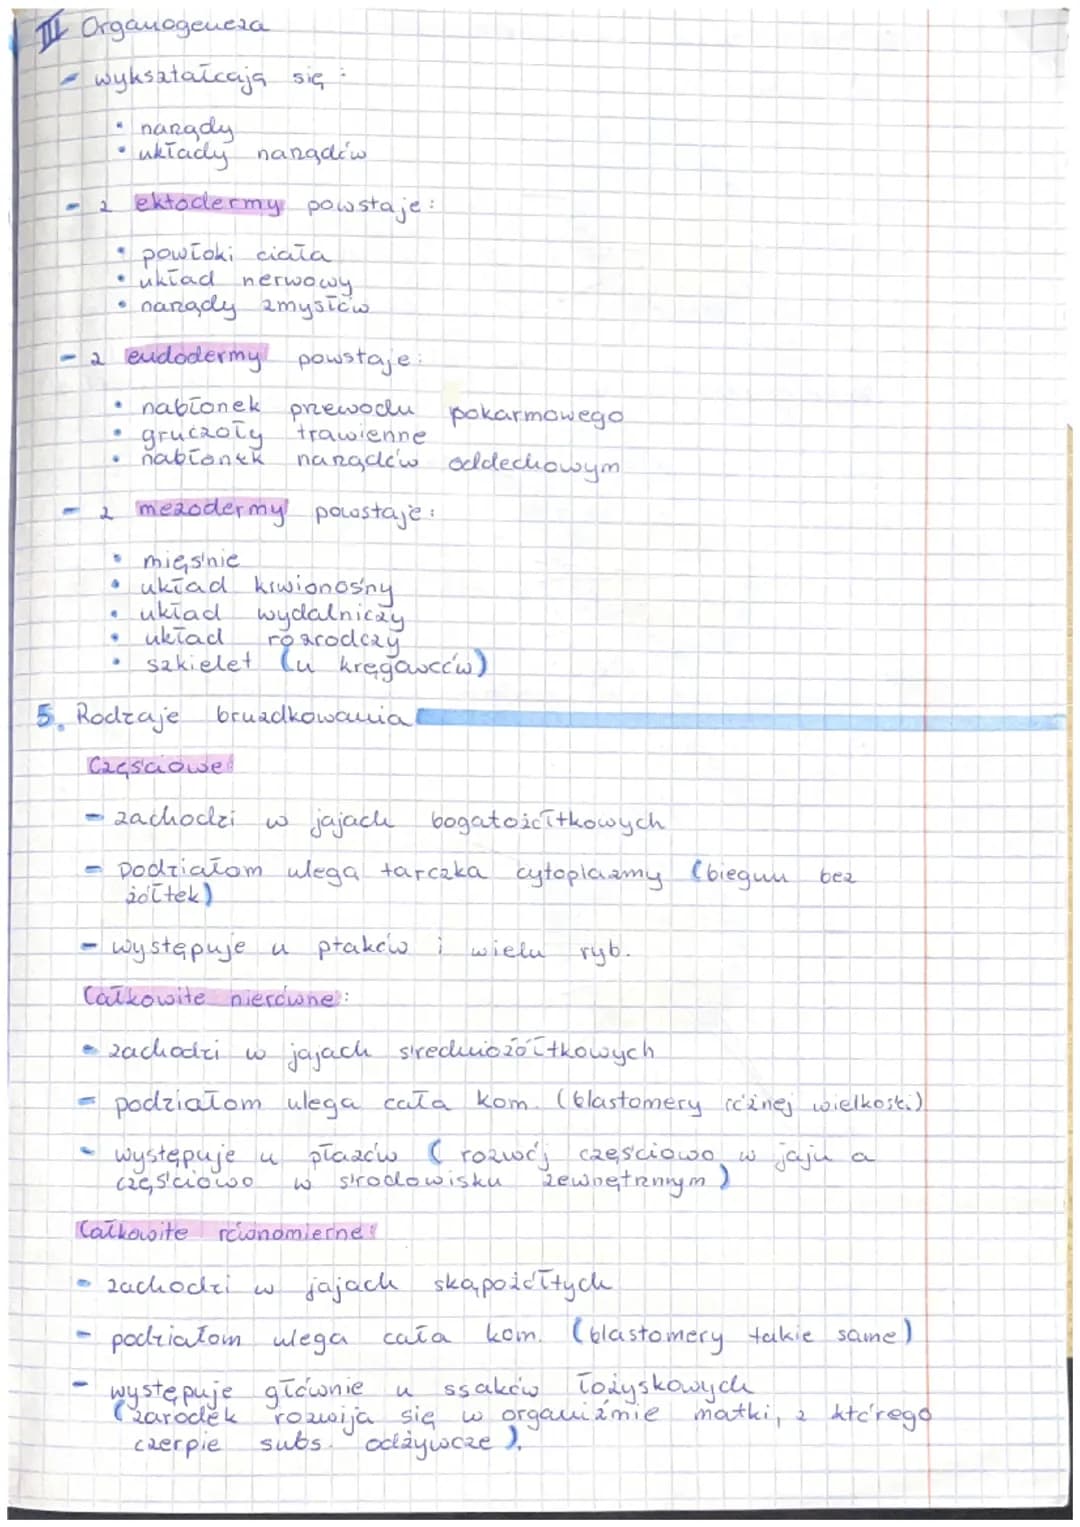 III Organogeneza
- wykształcają się :
• narządy
• układy narządów
- z ektodermy powstaje :
• powłoki ciała
• układ nerwowy
• narządy zmysłów
- z endodermy powstaje :
• nabłonek przewodu pokarmowego
• gruczoły trawienne
• nabłonek narządów oddechowym
- z mezodermy powstaje :
• mięśnie
• układ krwionośny
• układ wydalniczy
• układ rozrodczy
• szkielet (u kręgowców)
5. Rodzaje bruzdkowania
Częściowe:
- zachodzi w jajach bogatożółtkowych
- podziałom ulega tarczka cytoplazmy (biegun bez
żółtek)
- występuje u ptaków i wielu ryb.
Całkowite nierówne :
- zachodzi w jajach średniożółtkowych
- podziałom ulega cała kom. (blastomery różnej wielkości)
- występuje u płazów ( rozwój częściowo w jaju a
częściowo w środowisku zewnętrznym )
Całkowite równomierne :
- zachodzi w jajach skąpożółtych
- podziałom ulega cała kom. (blastomery takie same)
- występuje głównie u ssaków łożyskowych
(zarodek rozwija się w organiźmie matki, z którego
czerpie subs. odżywcze ).